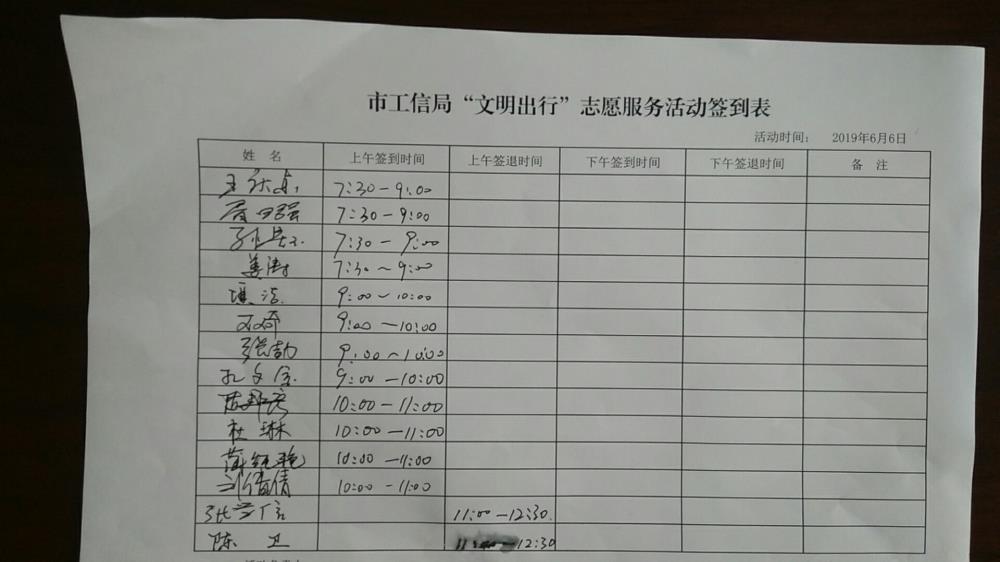 市工信局“文明出行”志愿服务活动签到表
活动时间： 2019年6月6日
姓 名 上午签到时间 上午签退时间 下午签到时间 下午签退时间 备 注
7:30-9:00
7:30-9:00
7:30-9:00
姜涛 7:30~9:00
9:00-10:00
9:00-10:00
张勃 9:00~10:00
孔文金 9:00-10:00
10:00-11:00
杜琳 10:00-11:00
薛钰艳 10:00-11:00
刘倩倩 10:00-11:00
张学信 11:00-12:30
陈卫 12:30